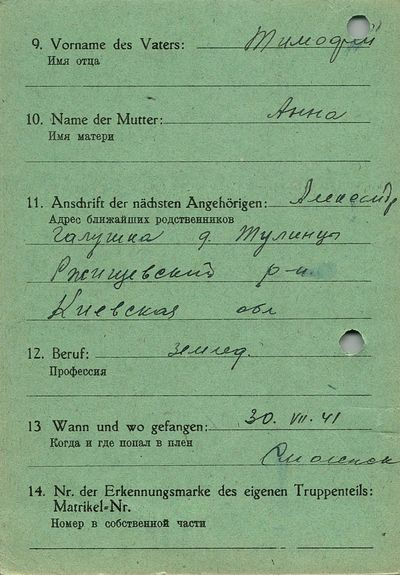 9. Vorname des Vaters: Тимофей
Имя отца
10. Name der Mutter: Анна
Имя матери
11. Anschrift der nächsten Angehörigen: Александр
Адрес ближайших родственников
Галушка д. Тулинцы
Ржищевский р-н
Киевская обл
12. Beruf: землед.
Профессия
13 Wann und wo gefangen: 30. VII. 41
Когда и где попал в плен
Смоленск
14. Nr. der Erkennungsmarke des eigenen Truppenteils:
Matrikel=Nr.
Номер в собственной части